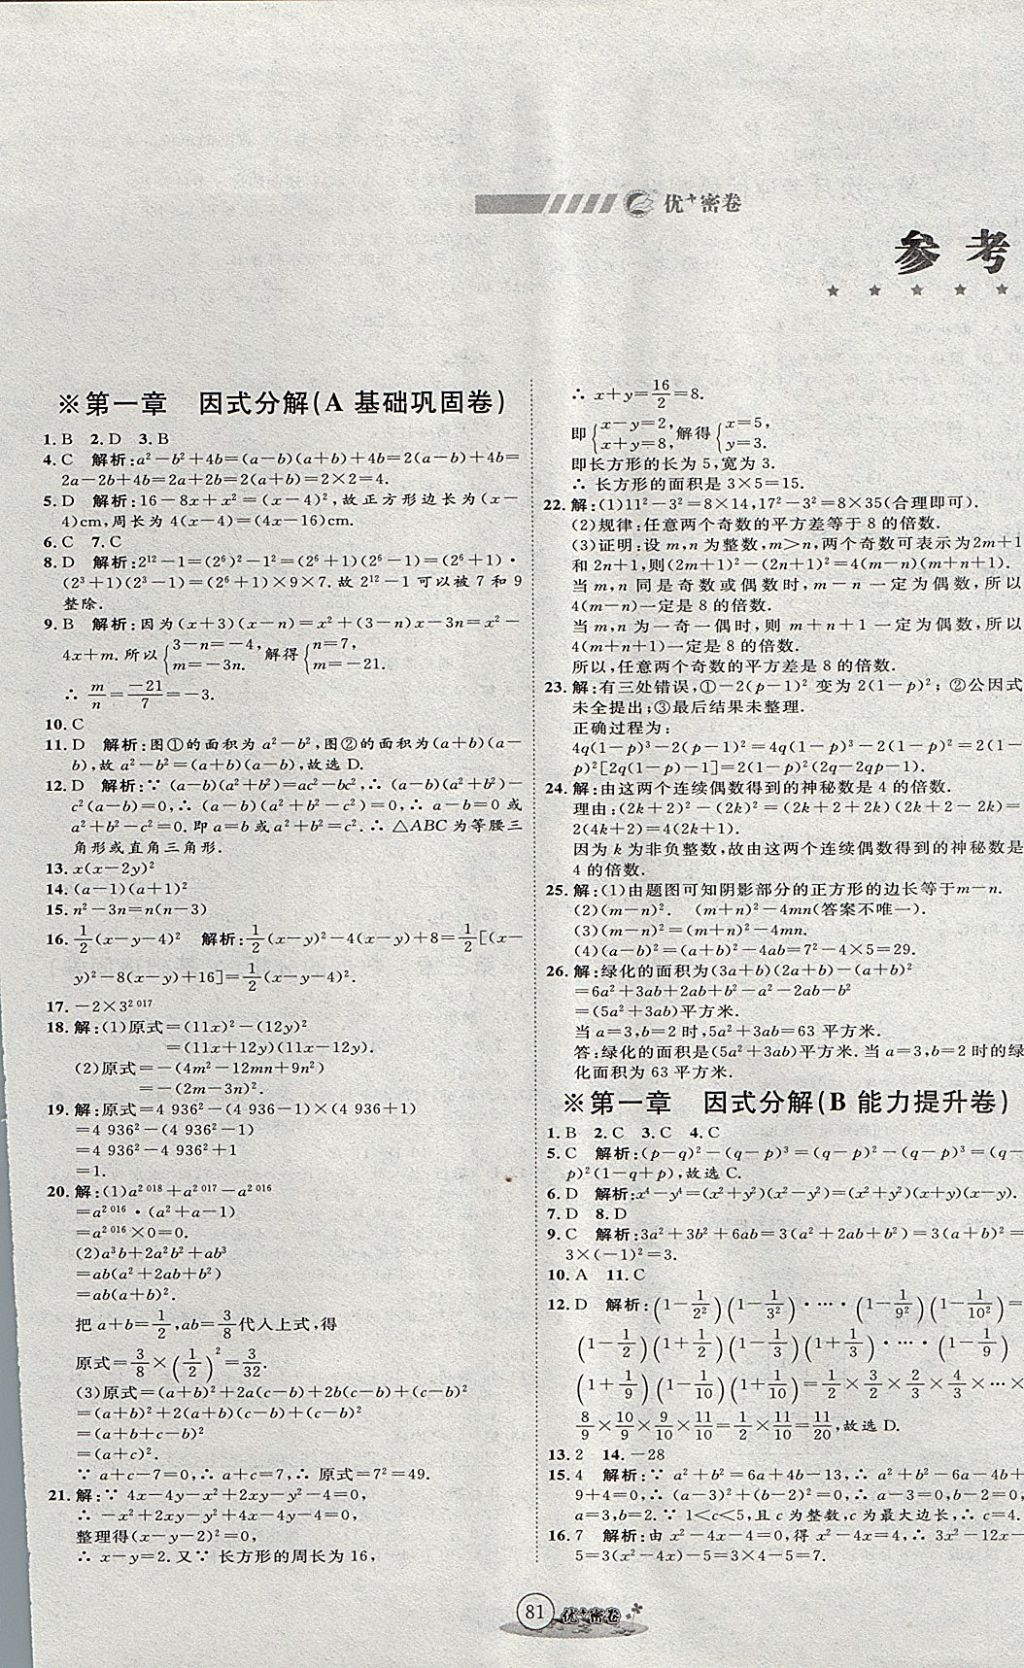 优⁺密卷
参 考
※第一章 因式分解(A 基础巩固卷)
1. B 2. D 3. B
4. C 解析:a²−b²+4b=(a−b)(a+b)+4b=2(a−b)+4b=
2a−2b+4b=2a+2b=2(a+b)=2×2=4.
5. D 解析:16−8x+x²=(x−4)²,故正方形边长为(x−
4)cm,周长为 4(x−4)=(4x−16)cm.
6. C 7. C
8. D 解析:2¹²−1=(2⁶)²−1²=(2⁶+1)(2⁶−1)=(2⁶+1)·
(2³+1)(2³−1)=(2⁶+1)×9×7.故 2¹²−1 可以被 7 和 9
整除.
9. B 解析:因为(x+3)(x−n)=x²+(3−n)x−3n=x²−
4x+m.所以{3−n=−4, m=−3n. 解得{n=7, m=−21.
∴ m/n=−21/7=−3.
10. C
11. D 解析:图①的面积为 a²−b²,图②的面积为(a+b)(a−
b),故 a²−b²=(a+b)(a−b),故选 D.
12. D 解析:∵ (a−b)(a²+b²)=ac²−bc²,∴ (a−b)(a²+b²)−
c²(a−b)=0,∴ (a−b)(a²+b²−c²)=0,∴ a−b=0 或
a²+b²−c²=0.即 a=b 或 a²+b²=c².∴ △ABC 为等腰三
角形或直角三角形.
13. x(x−2y)²
14. (a−1)(a+1)²
15. n²−3n=n(n−3)
16. 1/2(x−y−4)² 解析:1/2(x−y)²−4(x−y)+8=1/2[(x−
y)²−8(x−y)+16]=1/2(x−y−4)².
17. −2×3²⁰¹⁷
18. 解:(1)原式=(11x)²−(12y)²
=(11x+12y)(11x−12y).
(2)原式=−(4m²−12mn+9n²)
=−(2m−3n)².
19. 解:原式=4 936²−(4 936−1)×(4 936+1)
=4 936²−(4 936²−1)
=4 936²−4 936²+1
=1.
20. 解:(1)a²⁰¹⁸+a²⁰¹⁷−a²⁰¹⁶
=a²⁰¹⁶·(a²+a−1)
=a²⁰¹⁶×0=0.
(2)a³b+2a²b²+ab³
=ab(a²+2ab+b²)
=ab(a+b)².
把 a+b=1/2,ab=3/8代人上式,得
原式=3/8×(1/2)²=3/32.
(3)原式=(a+b)²+2a(c−b)+2b(c−b)+(c−b)²
=(a+b)²+2(a+b)(c−b)+(c−b)²
=(a+b+c−b)²
=(a+c)².
∵ a+c−7=0,∴ a+c=7,∴ 原式=7²=49.
21. 解:∵ 4x−4y−x²+2xy−y²−4=0,
∴ −x²+2xy−y²+4x−4y−4=0,
整理得(x−y−2)²=0,
∴ x−y=2.又∵ 长方形的周长为 16,
∴ x+y=16/2=8.
即{x−y=2, x+y=8, 解得{x=5, y=3.
即长方形的长为 5,宽为 3.
∴ 长方形的面积是 3×5=15.
22. 解:(1)11²−3²=8×14,17²−3²=8×35(合理即可).
(2)规律:任意两个奇数的平方差等于 8 的倍数.
(3)证明:设 m,n 为整数,m>n,两个奇数可表示为 2m+1
和 2n+1,则(2m+1)²−(2n+1)²=4(m−n)(m+n+1).
当 m,n 同是奇数或偶数时,m−n 一定为偶数,所以
4(m−n)一定是 8 的倍数.
当 m,n 为一奇一偶时,则 m+n+1 一定为偶数,所以
4(m+n+1)一定是 8 的倍数.
所以,任意两个奇数的平方差是 8 的倍数.
23. 解:有三处错误,①−2(p−1)² 变为 2(1−p)²;②公因式
未全提出;③最后结果未整理.
正确过程为:
4q(1−p)³−2(p−1)²=4q(1−p)³−2(1−p)²=2(1−
p)²[2q(1−p)−1]=2(1−p)²(2q−2qp−1).
24. 解:由这两个连续偶数得到的神秘数是 4 的倍数.
理由:(2k+2)²−(2k)²=(2k+2+2k)(2k+2−2k)=
2(4k+2)=4(2k+1).
因为 k 为非负整数,故由这两个连续偶数得到的神秘数是
4 的倍数.
25. 解:(1)由题图可知阴影部分的正方形的边长等于m−n.
(2)(m−n)². (m+n)²−4mn(答案不唯一).
(3)(m−n)²=(m+n)²−4mn.
(4)(a−b)²=(a+b)²−4ab=7²−4×5=29.
26. 解:绿化的面积为(3a+b)(2a+b)−(a+b)²
=6a²+3ab+2ab+b²−a²−2ab−b²
=(5a²+3ab)平方米.
当 a=3,b=2 时,5a²+3ab=63 平方米.
答:绿化的面积是(5a²+3ab)平方米.当 a=3,b=2 时的绿
化面积为 63 平方米.
※第一章 因式分解(B 能力提升卷)
1. B 2. C 3. C 4. C
5. C 解析:(p−q)²−(q−p)³=(q−p)²−(q−p)³=(q−
p)²(1−q+p),故选 C.
6. D 解析:x⁴−y⁴=(x²+y²)(x²−y²)=(x²+y²)(x+y)(x−y).
7. D 8. D
9. C 解析:3a²+3b²+6ab=3(a²+2ab+b²)=3(a+b)²=
3×(−1)²=3.
10. A 11. C
12. D 解析:(1−1/2²)(1−1/3²)·…·(1−1/9²)(1−1/10²)=
(1−1/2)(1+1/2)(1−1/3)(1+1/3)·…·(1−1/9)
(1+1/9)(1−1/10)(1+1/10)=1/2×3/2×2/3×…×
8/9×10/9×9/10×11/10=1/2×11/10=11/20,故选 D.
13. 2 14. −28
15. 4 解析:∵ a²+b²=6a+4b−13,∴ a²+b²−6a−4b+
9+4=0,∴ (a−3)²+(b−2)²=0,∴ a−3=0,b−2=0,∴
a=3,b=2.∵ 1<c<5,且 c 为整数,c 为最大边长,∴ c=4.
16. 7 解析:由 x²−4x−4=0,得 x²−4x=4,∴ 3x²−12x−
5=3(x²−4x)−5=12−5=7.
81
优⁺密卷